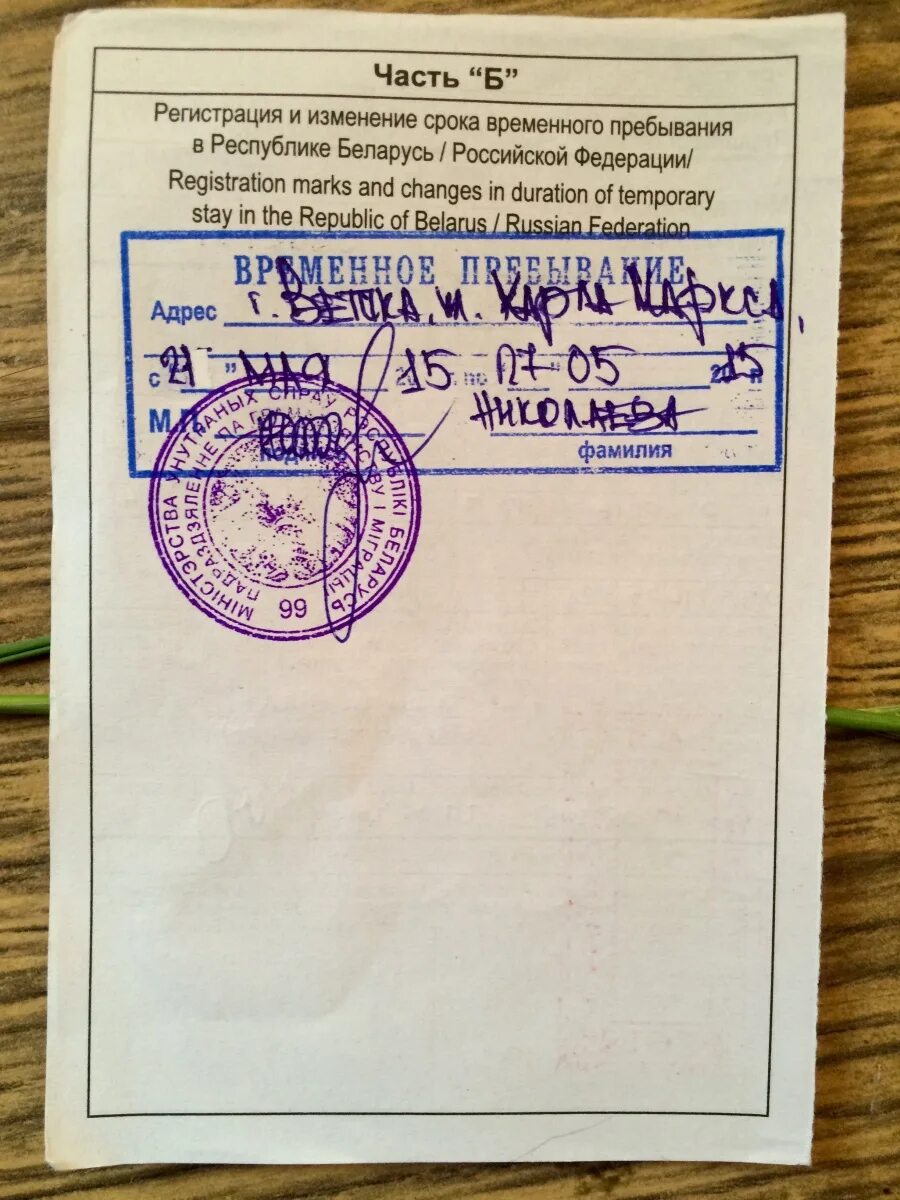 Часть “Б”
Регистрация и изменение срока временного пребывания
в Республике Беларусь / Российской Федерации/
Registration marks and changes in duration of temporary
stay in the Republic of Belarus / Russian Federation
ВРЕМЕННОЕ ПРЕБЫВАНИЕ
Адрес г. Ветка, ул. Карла Маркса,
с 21 " мая 2015 г. по 27 " 05 2015 г
М.П. Николаева
подпись фамилия
МІНІСТЭРСТВА УНУТРАНЫХ СПРАЎ РЭСПУБЛІКІ БЕЛАРУСЬ
ПАДРАЗДЗЯЛЕННЕ ПА ГРАМАДЗЯНСТВУ І МІГРАЦЫІ
99